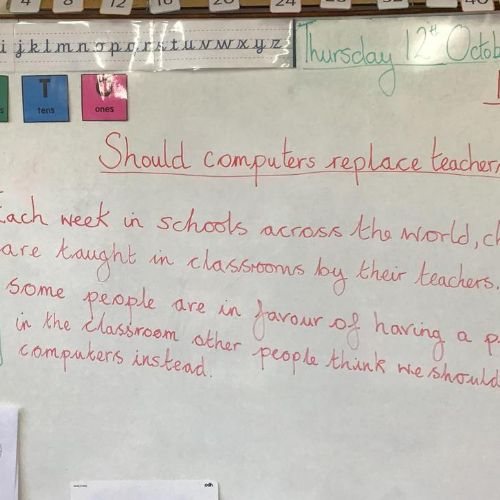 4 8 12 20 24 28 32 40
i j k l m n o p q r s t u v w x y z
Thursday 12th Octob
T U
s tens ones
Should computers replace teachers
Each week in schools across the world, ch
are taught in classrooms by their teachers.
Some people are in favour of having a p
in the classroom other people think we should
computers instead.